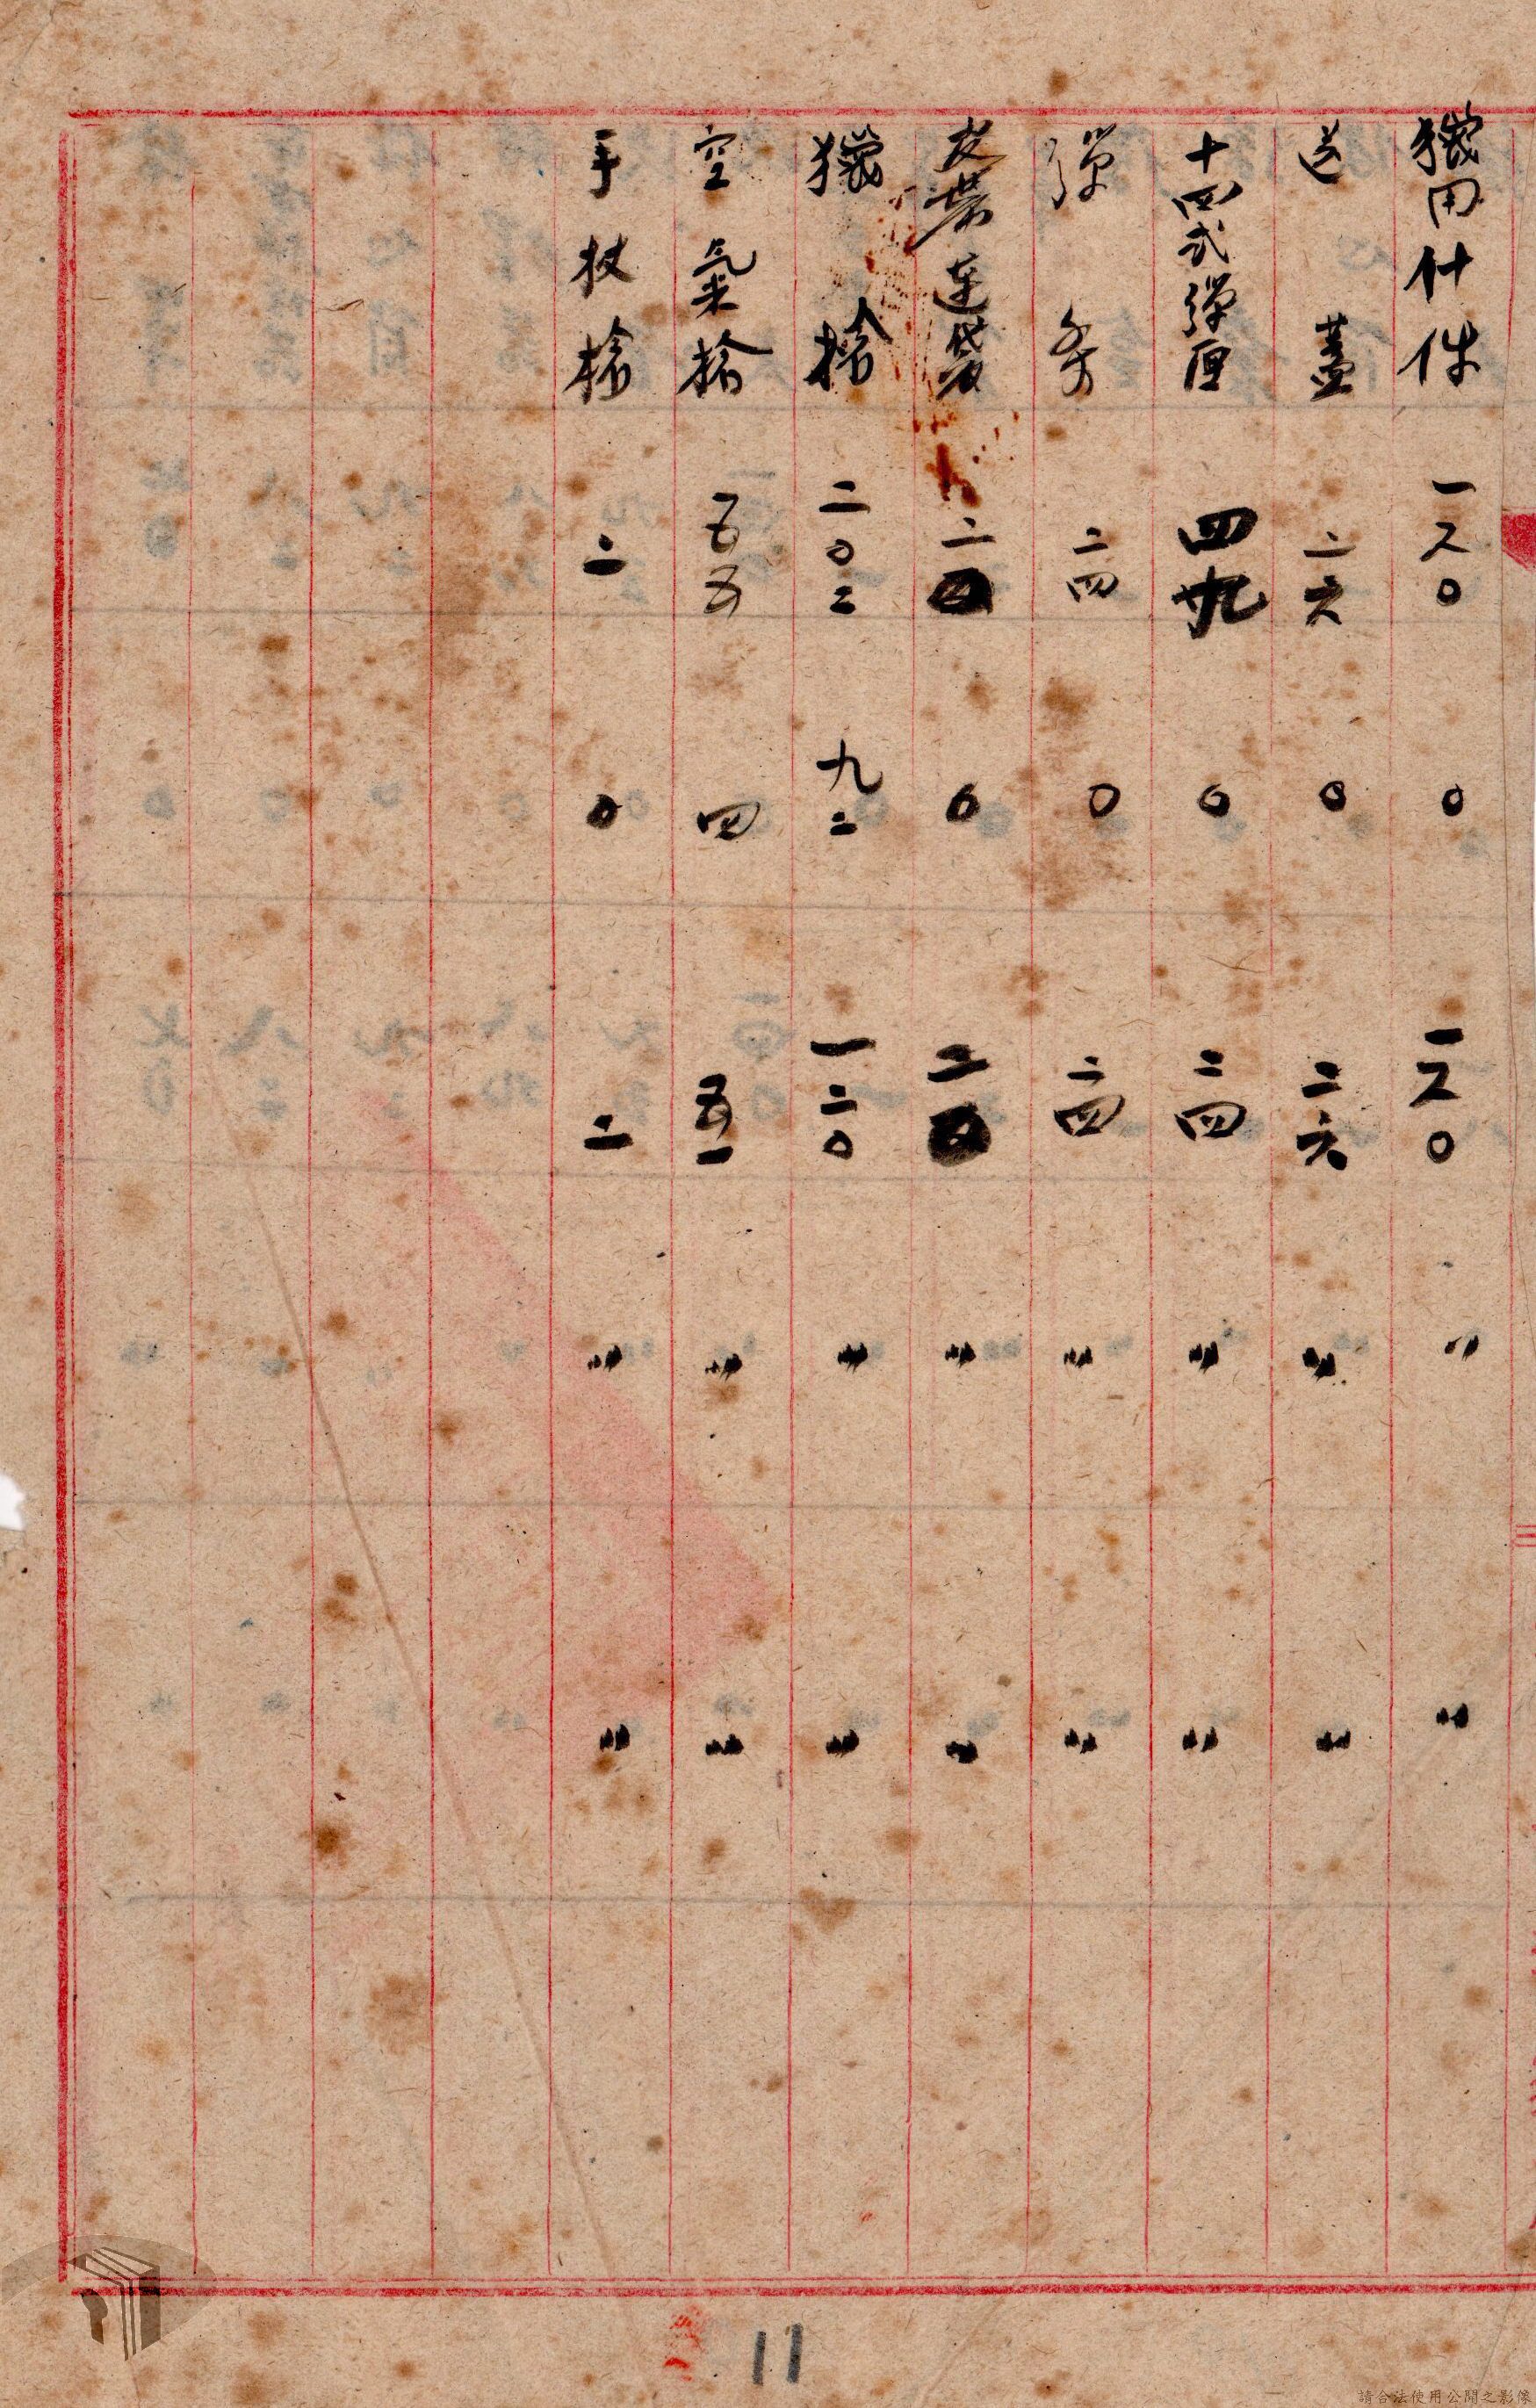 獵用什件 一八〇 〇 一八〇 〃 〃
送蓋 二六 〇 二六 〃 〃
十四式彈匣 四 〇 二四 〃 〃
彈 二四 〇 二四 〃 〃
皮 連袋 二 〇 二 〃 〃
獵槍 二〇二 九二 一二〇 〃 〃
空氣槍 五五 四 五一 〃 〃
手杖槍 二 〇 二 〃 〃
11
請合法使用公開之影像